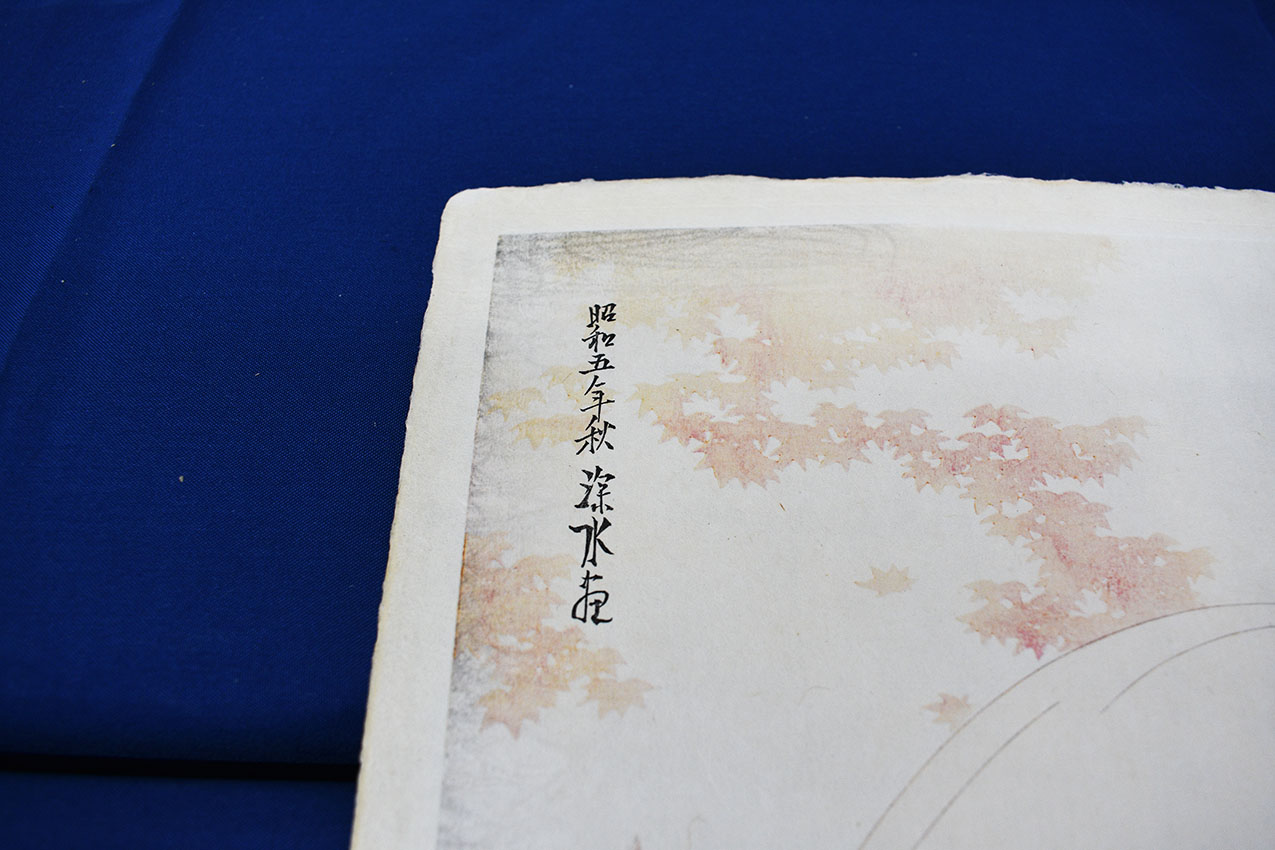 昭和五年秋 深水画